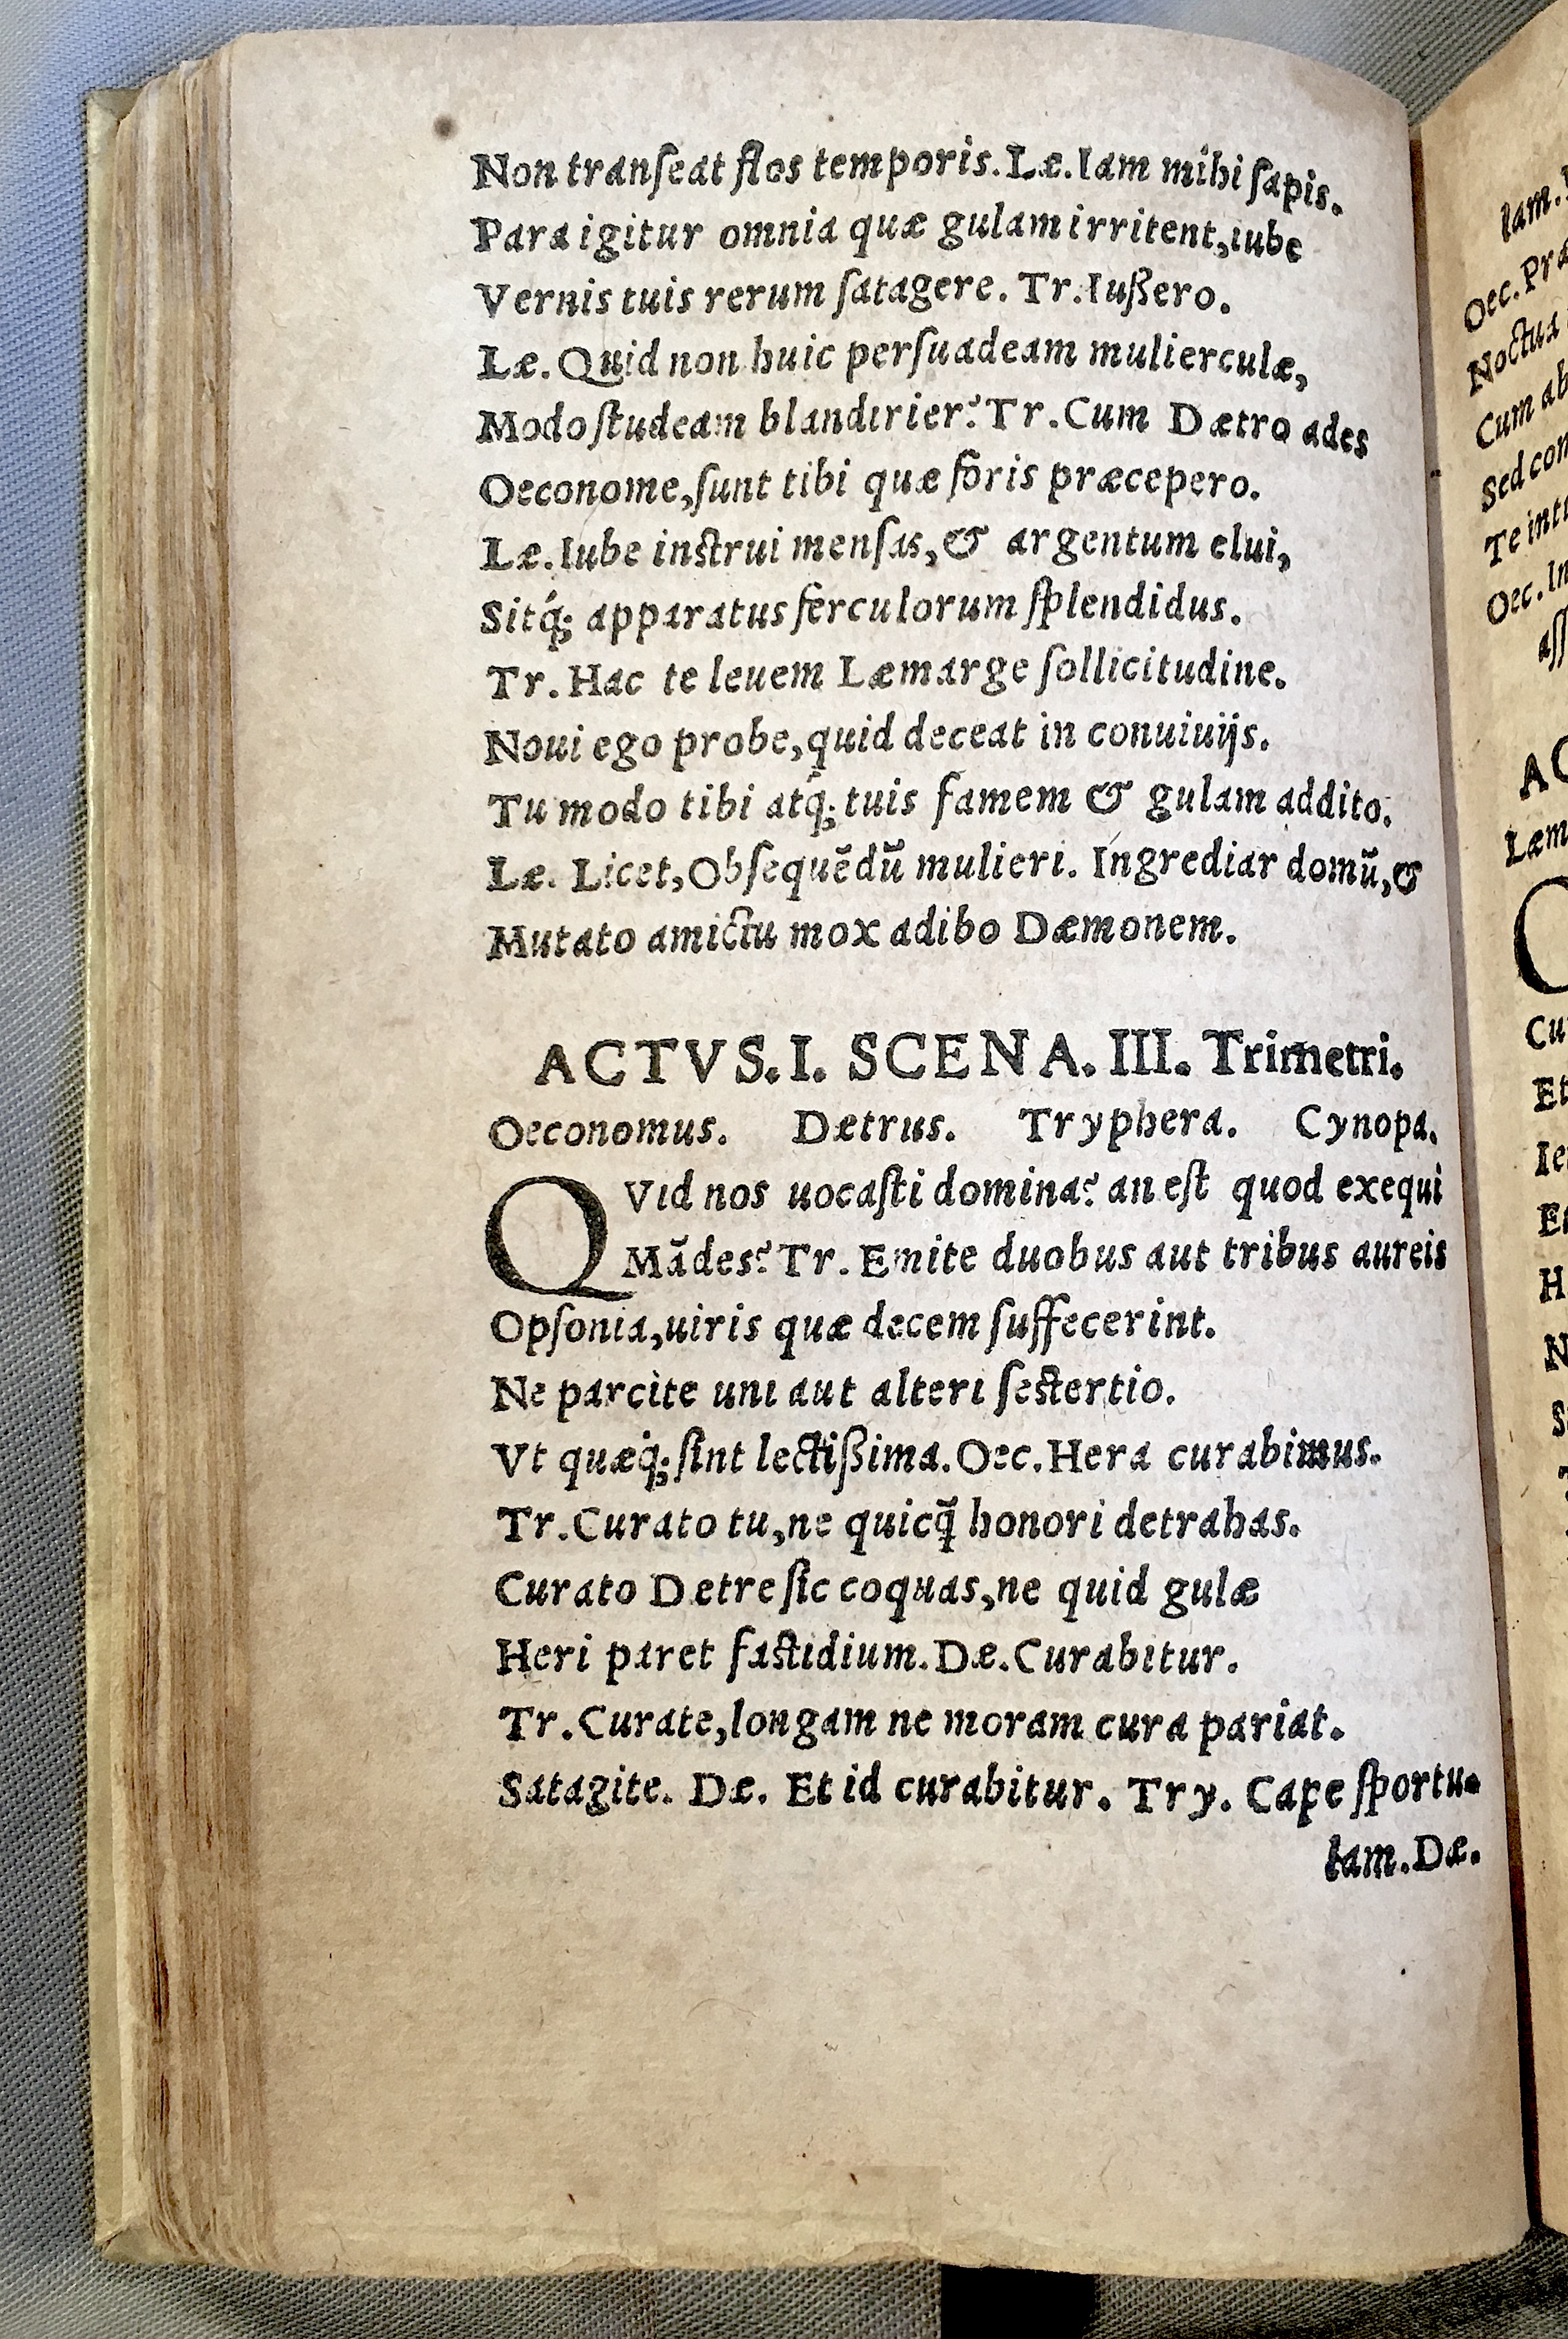 Non tranſeat flos temporis. Læ. Iam mihi ſapis.
Para igitur omnia quæ gulam irritent, iube
Vernis tuis rerum ſatagere. Tr. Iußero.
Læ. Quid non huic perſuadeam mulierculæ,
Modo ſtudeam blandirier? Tr. Cum Dætro ades
Oeconome, ſunt tibi quæ foris præcepero.
Læ. Iube inſtrui menſas, & argentum elui,
Sitq́; apparatus ferculorum ſplendidus.
Tr. Hac te leuem Læmarge ſollicitudine.
Noui ego probe, quid deceat in conuiuijs.
Tu modo tibi atq́; tuis famem & gulam addito.
Læ. Licet, Obſequẽdũ mulieri. Ingrediar domũ, &
Mutato amictu mox adibo Dæmonem.
ACTVS. I. SCENA. III. Trimetri.
Oeconomus. Dætrus. Tryphera. Cynopa.
QVid nos uocaſti domina? an eſt quod exequi
Mãdes? Tr. Emite duobus aut tribus aureis
Opſonia, uiris quæ decem ſuffecerint.
Ne parcite uni aut alteri ſeſtertio.
Vt quæq́; ſint lectißima. Oec. Hera curabimus.
Tr. Curato tu, ne quicq̃ honori detrahas.
Curato Dætre ſic coquas, ne quid gulæ
Heri paret faſtidium. Dæ. Curabitur.
Tr. Curate, longam ne moram cura pariat.
Satagite. Dæ. Et id curabitur. Try. Cape ſportu-
lam. Dæ.
Iam.
Oec. Præ
Noctua
Cum ab
Sed con
Te int
Oec. In
aſſ
AC
Læm
C
Cu
Et
Ie
Et
H
N
S